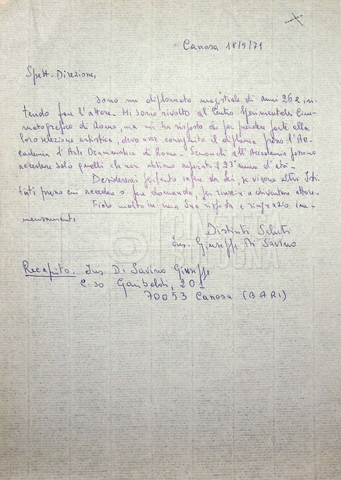 Canosa 18/5/71
Spett. Direzione,
sono un diplomato magistrale di anni 26 e in-
tendo fare l'attore. Mi sono rivolto al Centro Sperimentale Cine-
matografico di Roma, ma mi ha risposto che per prendere parte alla
loro selezione artistica, devo aver conseguito il diploma presso l'Ac-
cademia d'Arte Drammatica di Roma. Senonché all'Accademia possono
accedere solo quelli che non abbiano superato il 23° anno d'età.
Desidererei pertanto sapere da Lei se vi sono altri Isti-
tuti presso cui accedere o far domanda, per riuscire a diventare attore.
Fido molto in una Sua risposta e ringrazio im-
mensamente
Distinti Saluti
Ins. Giuseppe Di Savino
Recapito: Ins. Di Savino Giuseppe
C.so Garibaldi, 201
70053 Canosa (BARI)